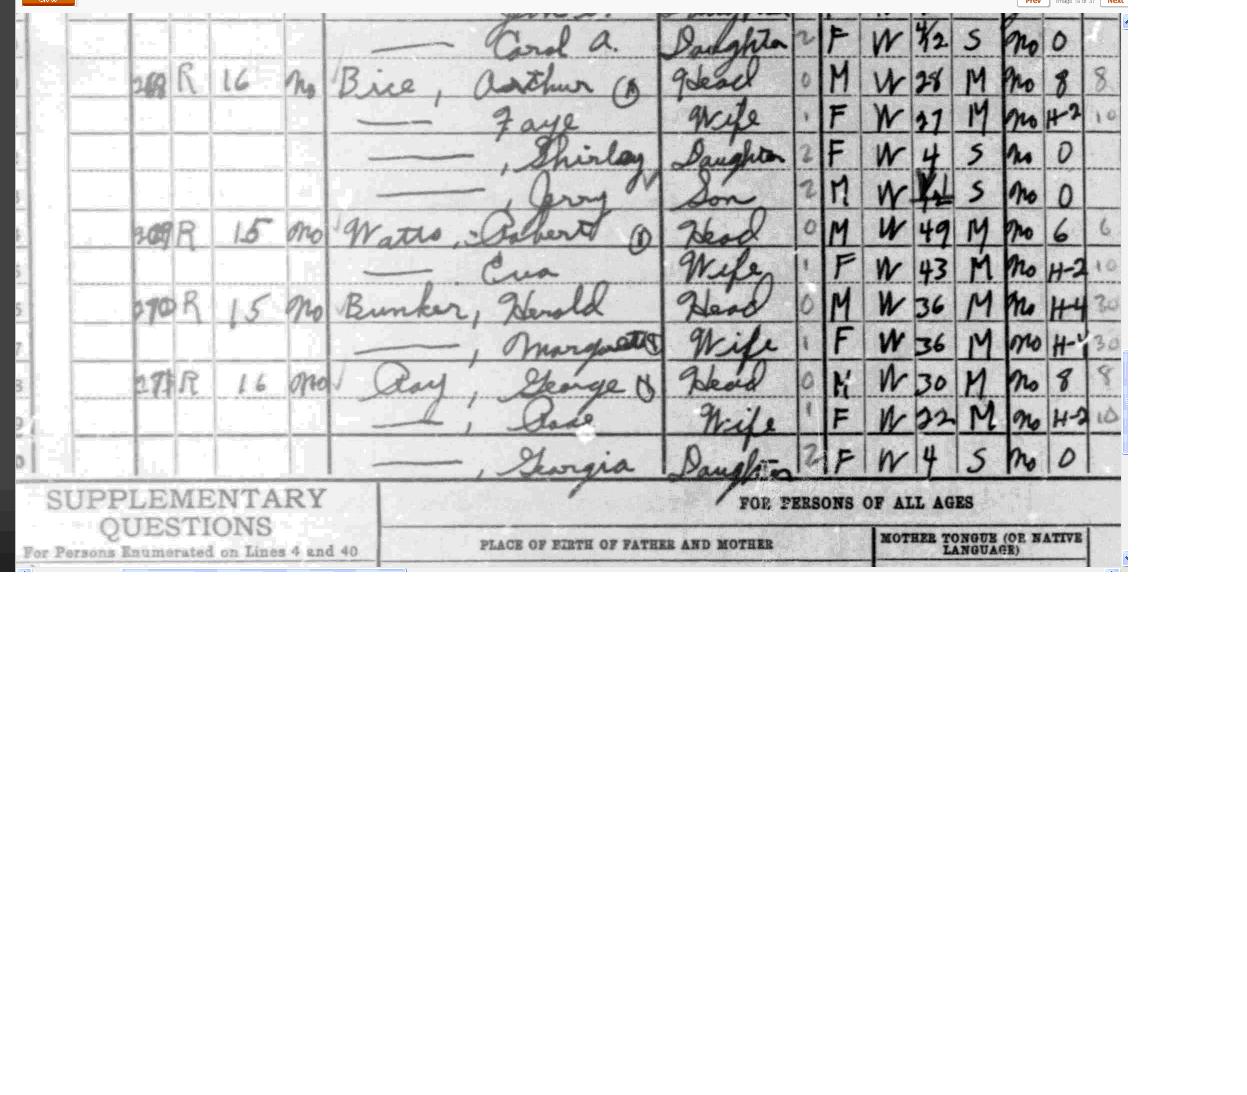 Carol A. Daughter 2 F W 4/2 S No 0
268 R 16 No Bice, Arthur Head 0 M W 28 M No 8 8
Faye Wife 1 F W 27 M No H-2 10
, Shirley Daughter 2 F W 4 S No 0
, Jerry Son 2 M W S No 0
269 R 15 No Watts, Robert Head 0 M W 49 M No 6 6
Eva Wife 1 F W 43 M No H-2 10
270 R 15 No Bunker, Herold Head 0 M W 36 M No H-4 30
, Margarett Wife 1 F W 36 M No H-4 30
271 R 16 No Ray, George Head 0 M W 30 M No 8 8
, Rose Wife 1 F W 22 M No H-2 10
, Georgia Daughter 2 F W 4 S No 0
SUPPLEMENTARY
QUESTIONS
For Persons Enumerated on Lines 4 and 40
FOR PERSONS OF ALL AGES
PLACE OF BIRTH OF FATHER AND MOTHER
MOTHER TONGUE (OR NATIVE
LANGUAGE)